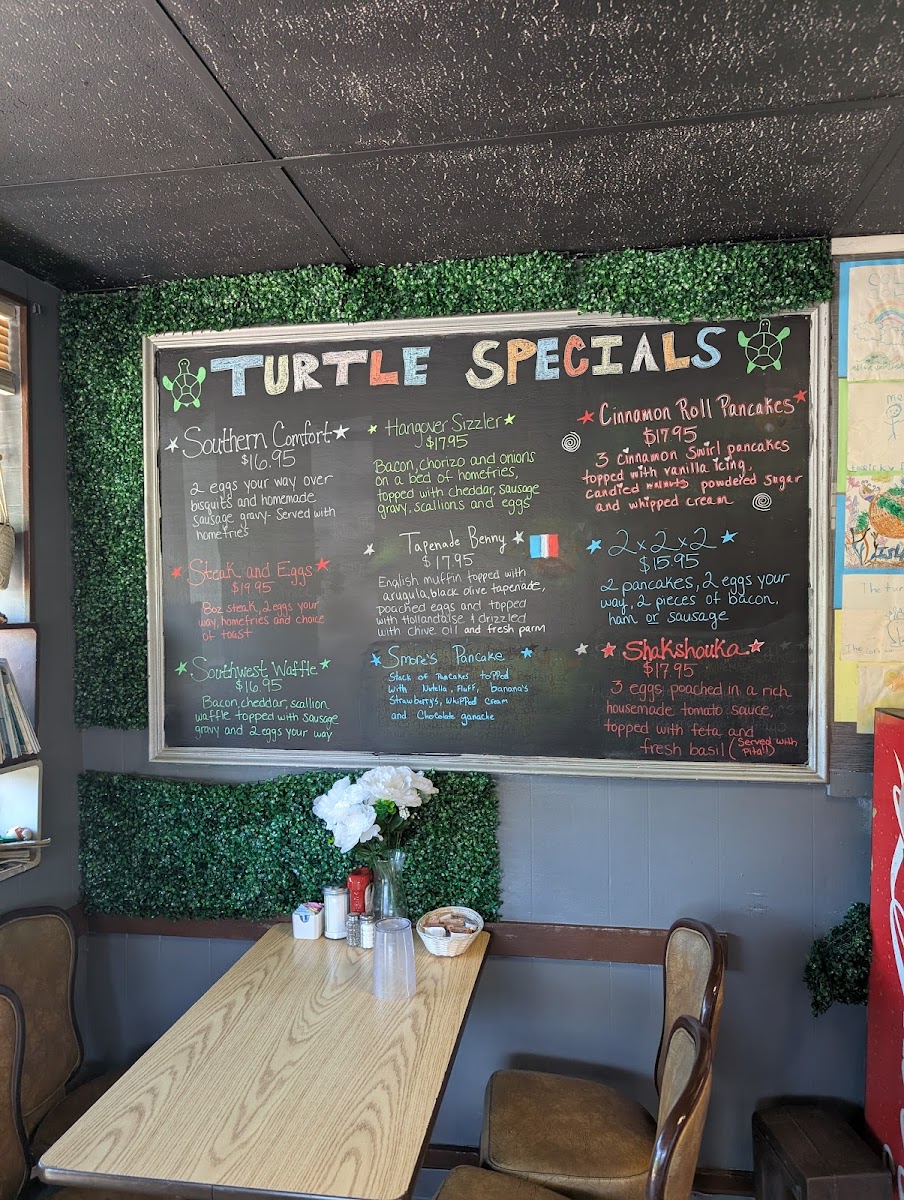 TURTLE SPECIALS
Southern Comfort
$16.95
2 eggs your way over
bisquits and homemade
sausage gravy- Served with
homefries
Steak and Eggs
$19.95
8oz steak, 2 eggs your
way, homefries and choice
of toast
Southwest Waffle
$16.95
Bacon, cheddar, scallion
waffle topped with sausage
gravy and 2 eggs your way
Hangover Sizzler
$17.95
Bacon, chorizo and onions
on a bed of homefries,
topped with cheddar, sausage
gravy, scallions and eggs
Tapenade Benny
$17.95
English muffin topped with
arugula, black olive tapenade,
poached eggs and topped
with hollandaise & drizzled
with chive oil and fresh parm
Smore's Pancake
Stack of Pancakes topped
with Nutella, Fluff, banana's
Strawberry's, whipped cream
and Chocolate ganache
Cinnamon Roll Pancakes
$17.95
3 cinnamon swirl pancakes
topped with vanilla icing,
candied walnuts powdered sugar
and whipped cream
2x2x2
$15.95
2 pancakes, 2 eggs your
way, 2 pieces of bacon,
ham or sausage
Shakshouka
$17.95
3 eggs poached in a rich
housemade tomato sauce,
topped with feta and
fresh basil (Served with
Pita!!)
me
The tur